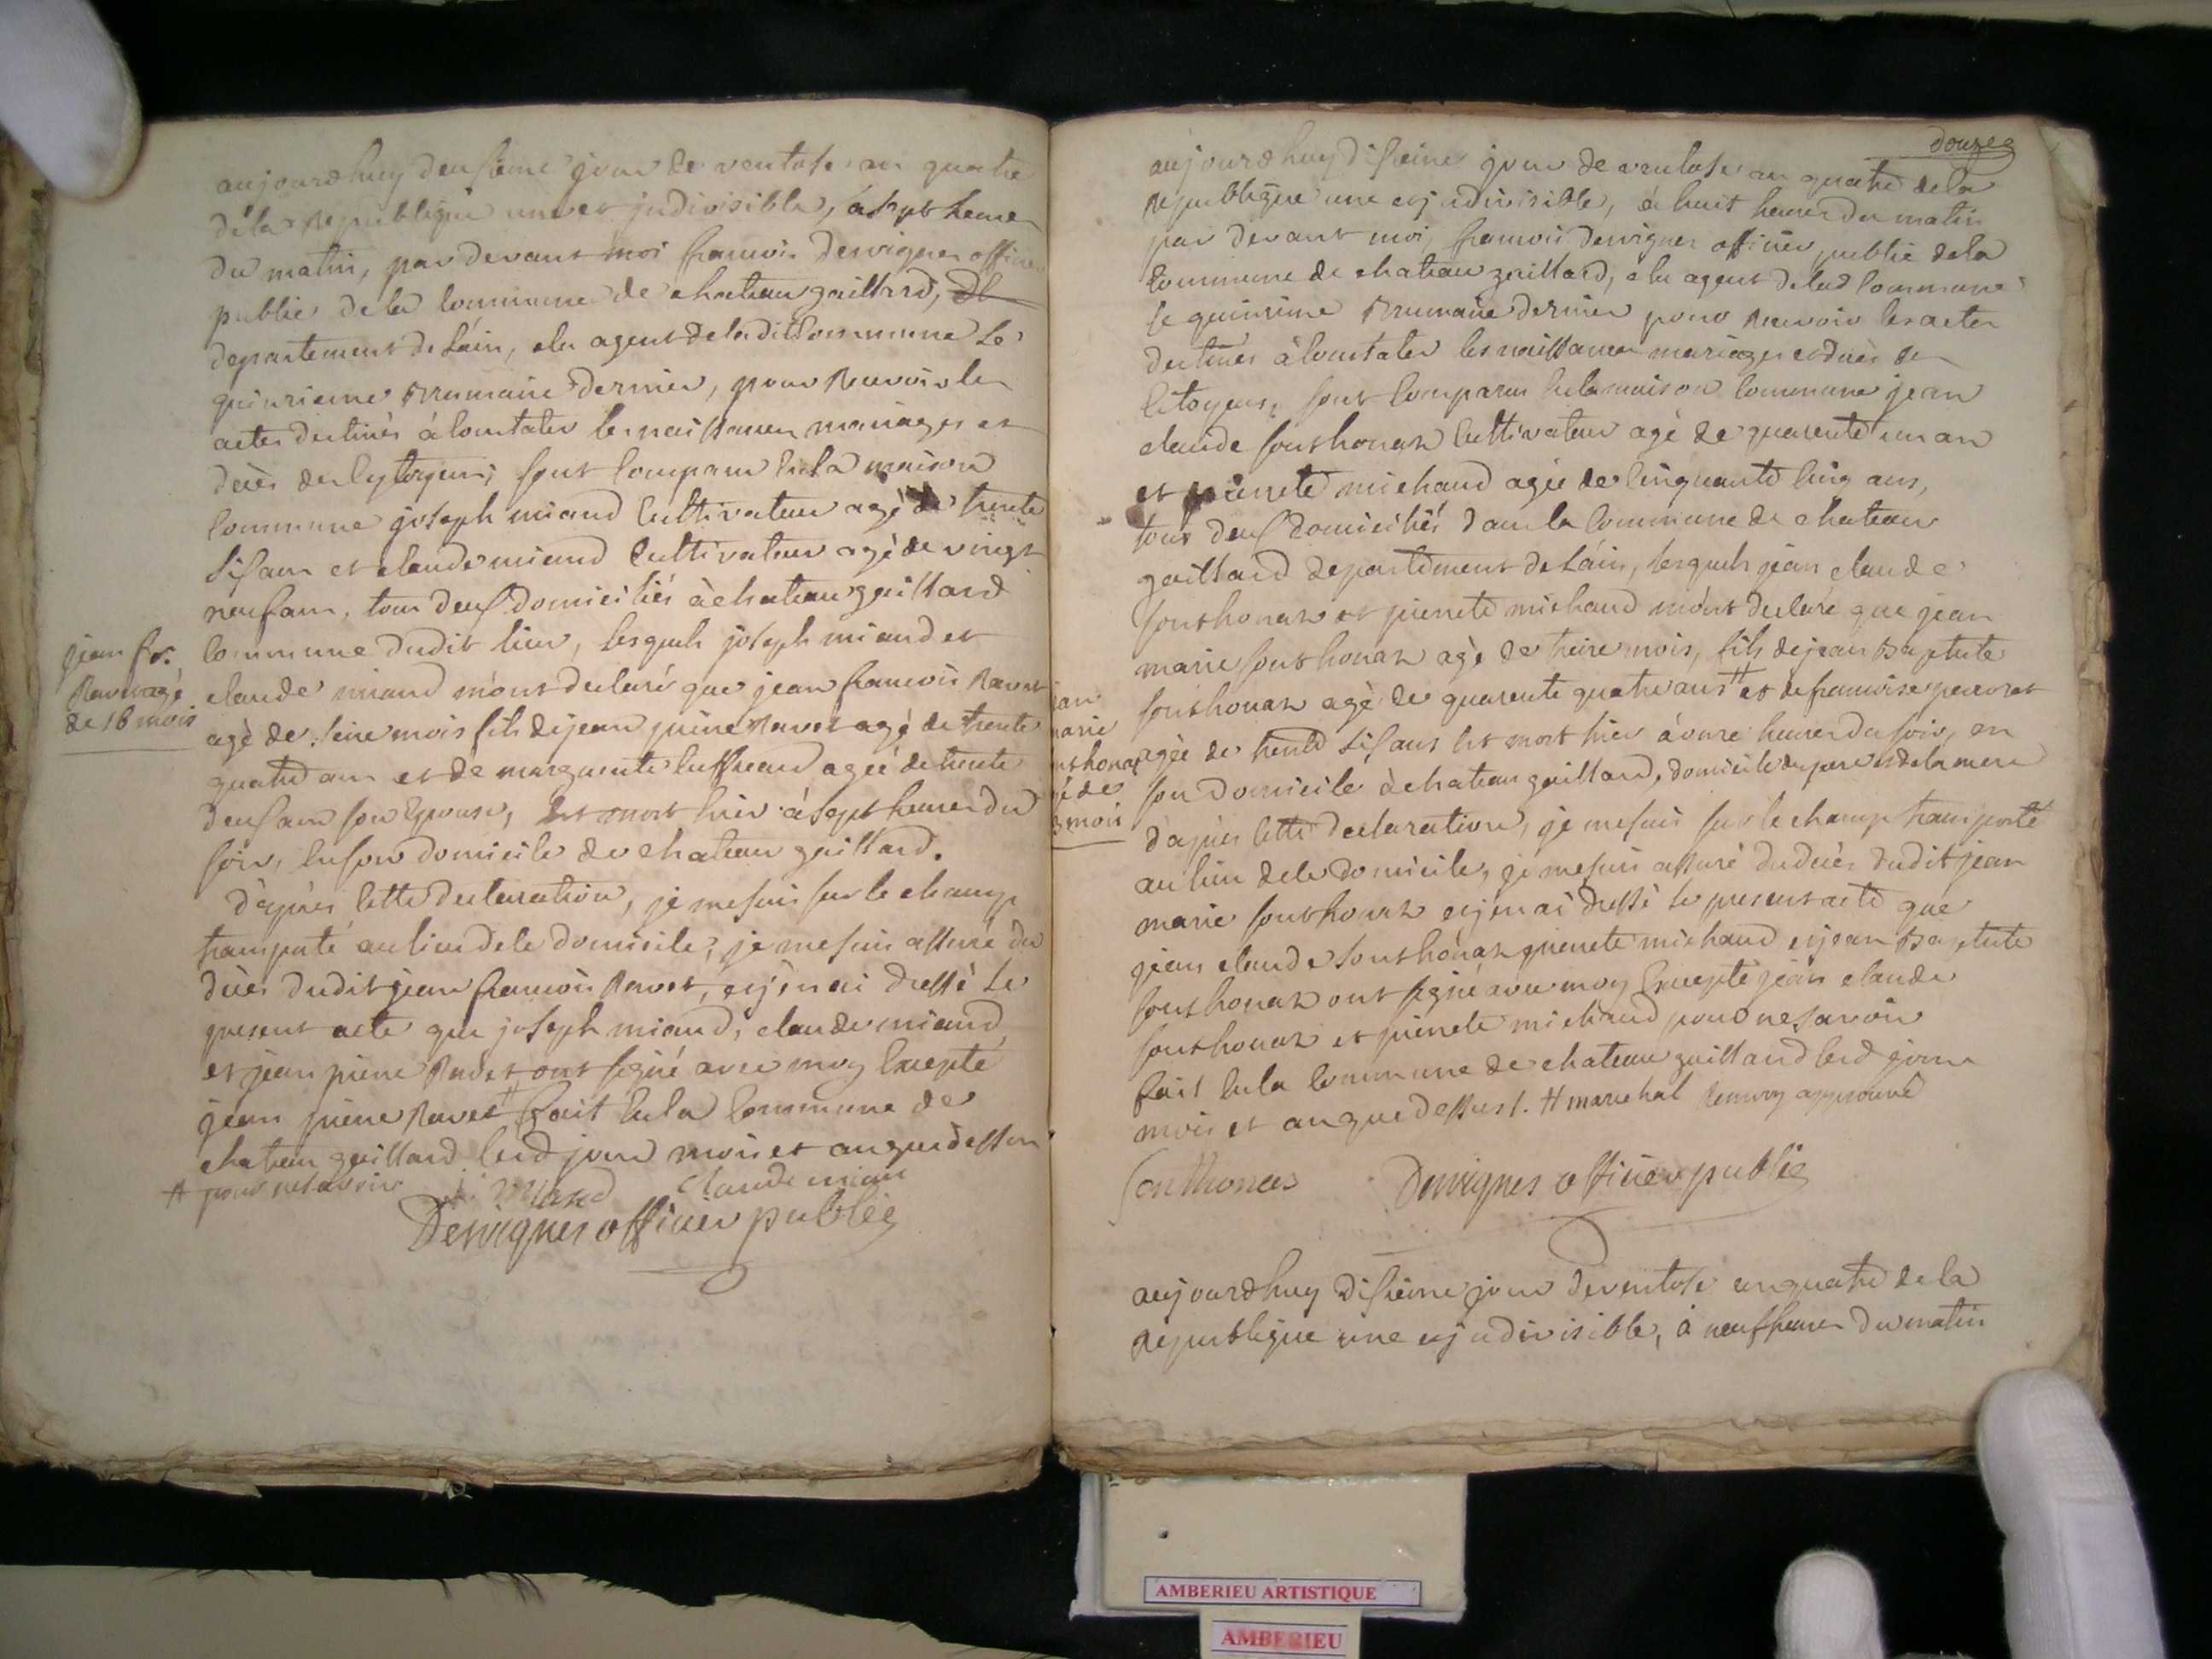 aujourdhuy deusieme jour de ventose an quatre
de la Republique une et jndivisible, á sept heures
du matin, par devant moi francois Dervignes officier
public de la Commune de chateau gaillard,
departement de Láin, elu agent de la dit Commune Le
quinsieme Brumaire dernier, pour Recevoir les
actes destinés à Constater les naissances mariages et
décès des Cytoyens; sont Comparus en la maison
Commune joseph miand Cultivateur agé de trente
sis ans et claude miand Cultivateur agé de vingt
neuf ans, tous deus domiciliés à chateau gaillard
Commune dudit lieu, lesquels joseph miand et
claude miand m'ont declaré que jean francois Ravet
agé de seise mois fils de jean pierre Ravet agé de trente
quatre ans et de marguerite agée de trente
deus ans son Epouse, Est mort hier à sept heures du
soir, en son domicile de chateau gaillard.
D'après Cette declaration, je me suis sur le champ
transporté au lieu de le domicile, je me suis assuré du
décès dudit jean francois Ravet, et j'en ai dressé Le
present acte que joseph miand, claude miand
et jean pierre Ravet ont signé avec moy Excepté
jean pierre Ravet # fait En la Commune de
chateau gaillard lesd jour mois et an que dessus
# pour ne savoir
miand claude mian
Dervignes officier public
jean fr.
Ravet agé
de 16 mois
douze
aujourdhuy disieme jour de ventose an quatre de la
Republique une et jndivisible, á huit heures du matin
par devant moi, francois dervignes officier public de la
Commune de chateau gaillard, elu agent de lad Commune
le quinsieme Brumaire dernier pour Recevoir les actes
destinés à Constater les naissances mariages et décès des
Citoyens, sont Comparus En la maison Commune jean
claude sonthonax Cultivateur agé de quarente un an
et pierrete michaud agée de Cinquante Cinq ans,
tous deus domiciliés dans la Commune de chateau
gaillard departement de Láin, lesquels jean claude
sonthonax et pierrete michaud m'ont declaré que jean
marie sonthonax agé de treise mois, fils de jean Baptiste
sonthonax agé de quarente quatre ans # et de francoise
agée de trente sis ans Est mort hier á onse heures du soir, en
son domicile à chateau gaillard, domicile du pere et de la mere
d'après Cette declaration, je me suis sur le champ transporté
au lieu de le domicile, je me suis assuré du décès dudit jean
marie sonthonax et j'en ai dressé le present acte que
jean claude sonthonax pierrete michaud et jean Baptiste
sonthonax ont signé avec moy Excepté jean claude
sonthonax et pierrete michaud pour ne savoir
fait En la Commune de chateau gaillard lesd jour
mois et an que dessus /. # marechal Renvoy approuvé
Sonthonax Dervignes officier public
jean
marie
sonthonax
agé de
13 mois
aujourdhuy disieme jour de ventose an quatre de la
Republique une et jndivisible, á neuf heures du matin
AMBERIEU ARTISTIQUE
AMBERIEU